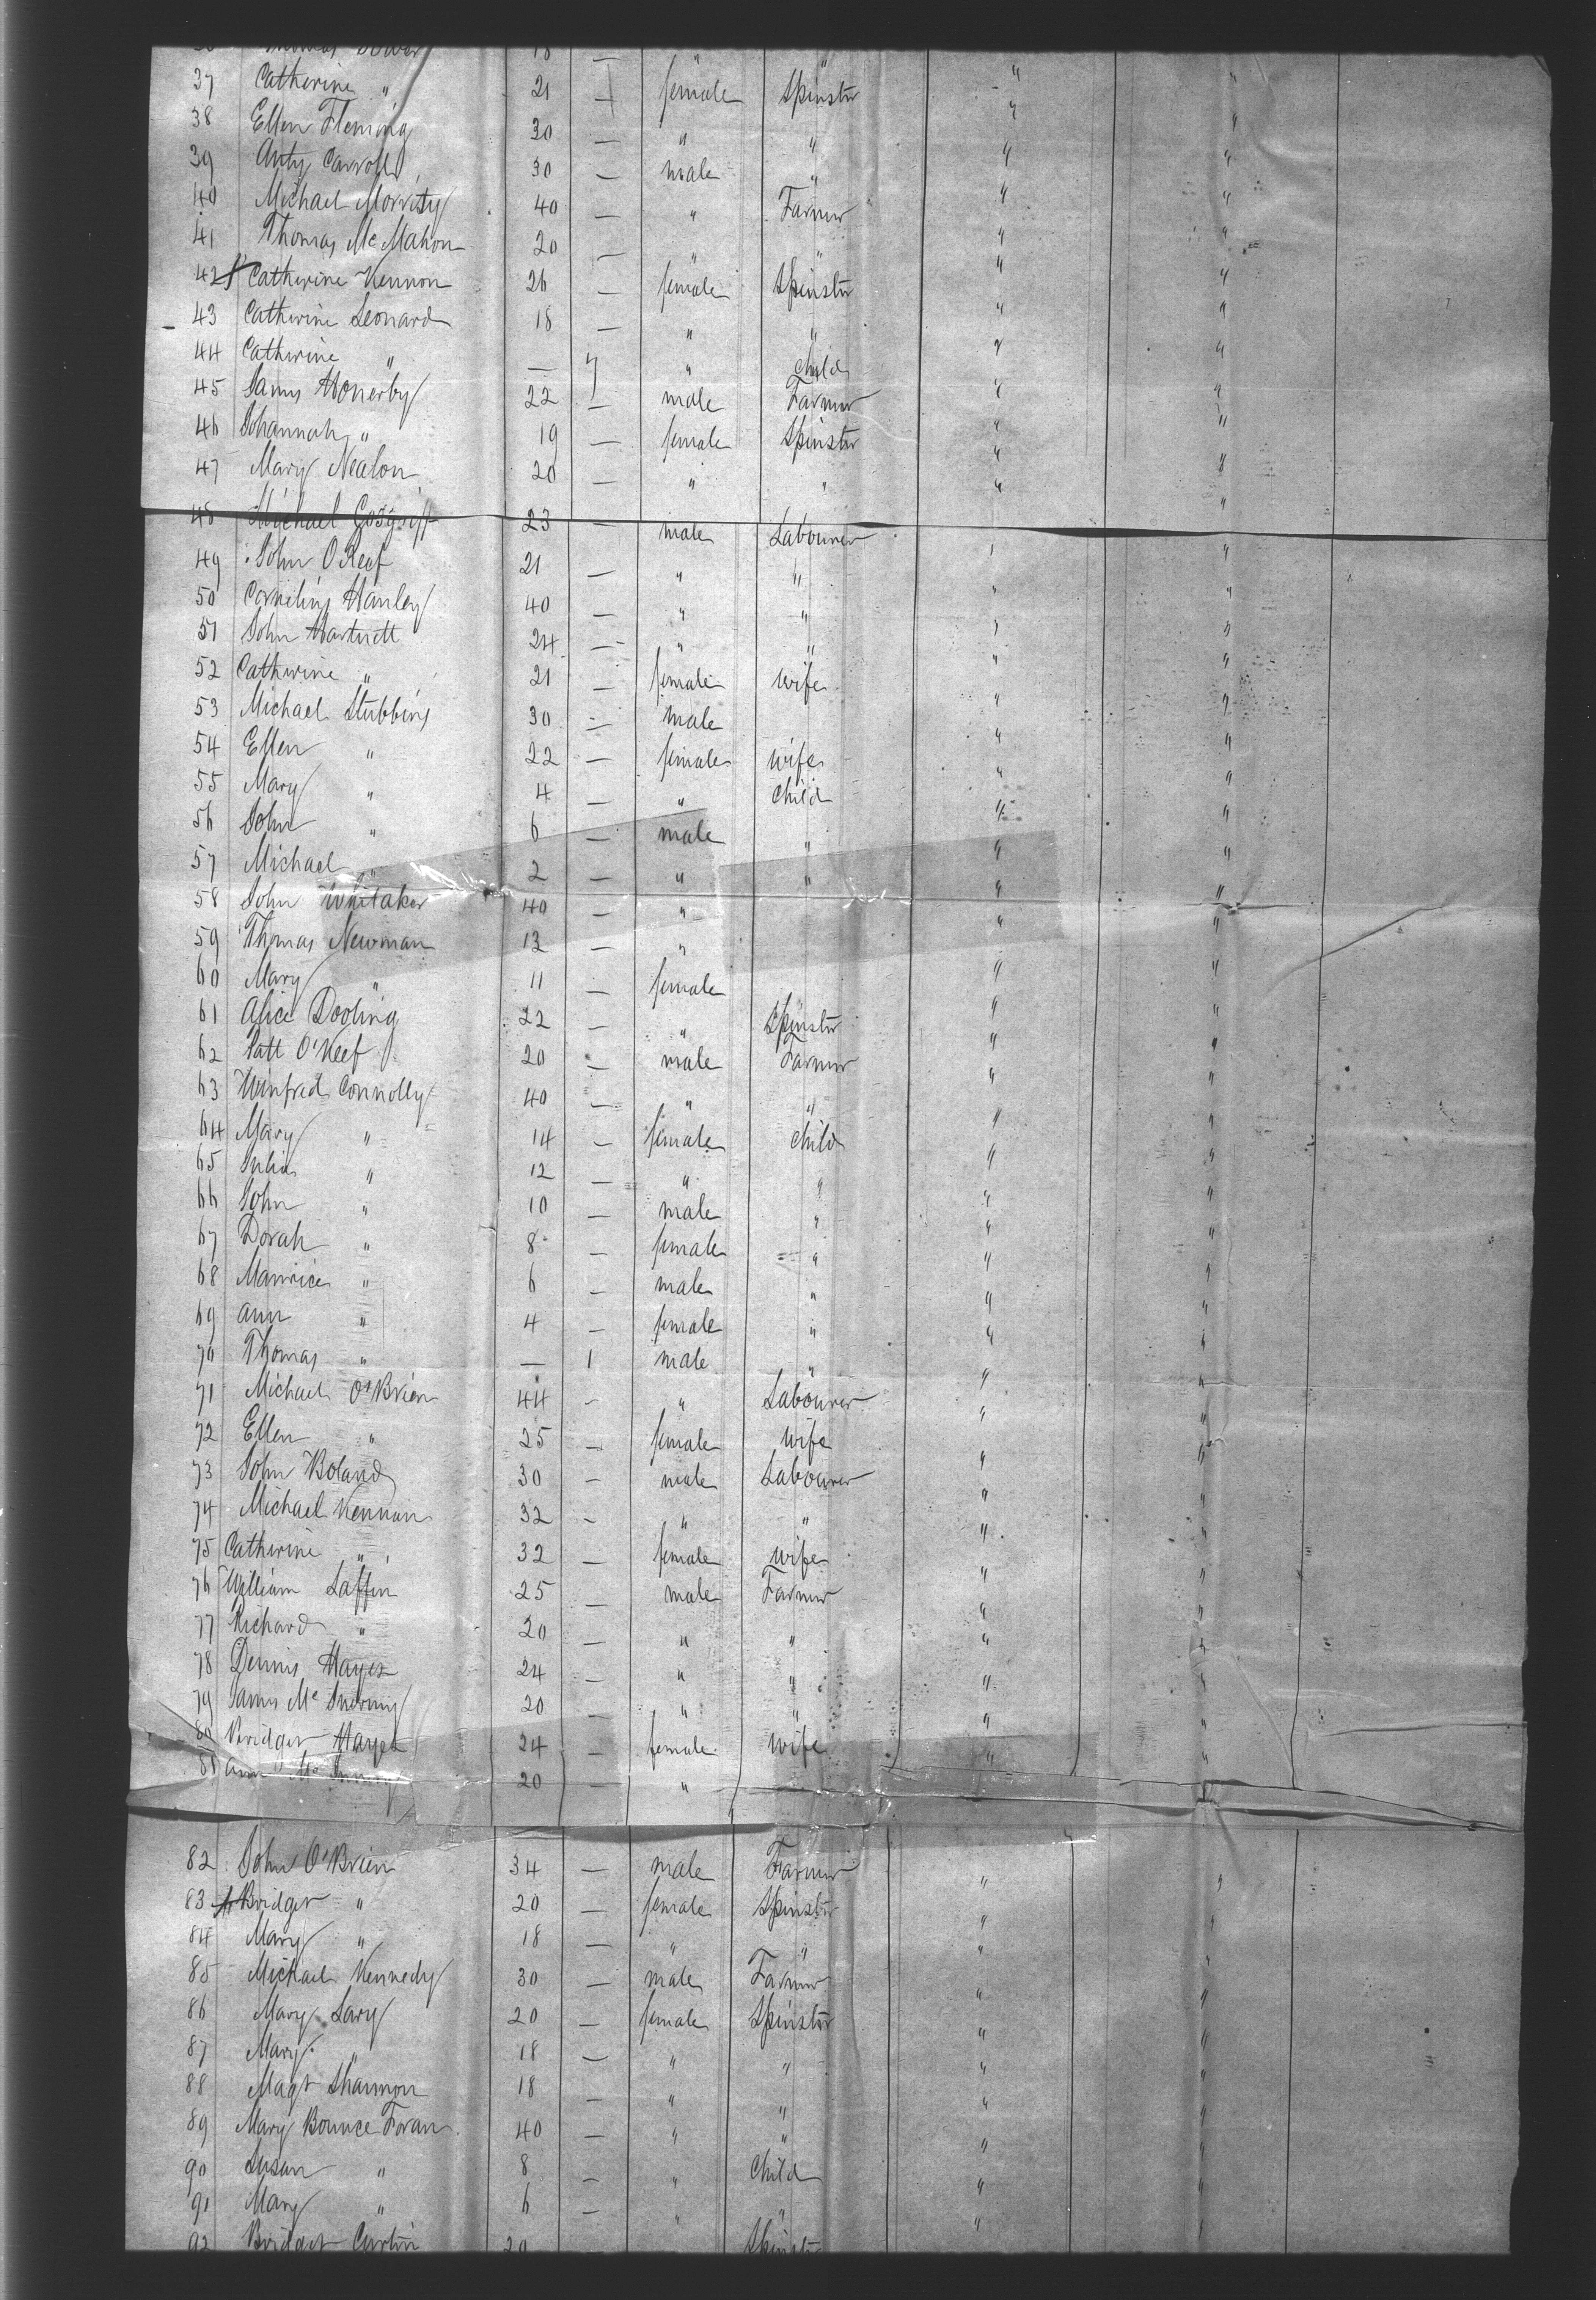 Thomas 18 — " "
37 Catherine " 21 — female Spinster " "
38 Ellen Fleming 30 — " " " "
39 Anty Carroll 30 — male " " "
40 Michael Morrisy 40 — " Farmer " "
41 Thomas Mc Mahon 20 — " " " "
42 Catherine Kennon 26 — female Spinster " "
43 Catherine Leonard 18 — " " " "
44 Catherine " — 7 " child " "
45 James 22 — male Farmer " "
46 Johannah " 19 — female Spinster " "
47 Mary Nealon 20 — " " " "
48 Michael 23 — male Labourer "
49 John O Keef 21 — " " " "
50 Cornelius Hanley 40 — " " " "
51 John Hartnett 24 — " " " "
52 Catherine " 21 — female wife " "
53 Michael Stubbins 30 — male " "
54 Ellen " 22 — female wife " "
55 Mary " 4 — " child " "
56 John " 6 — male " " "
57 Michael " 2 — " " " "
58 John Whitaker 40 — " " "
59 Thomas Newman 12 — " " "
60 Mary " 11 — female " "
61 Alice Dooling 22 — " Spinster " "
62 Patt O'Keef 20 — male Farmer " "
63 Winfred Connolly 40 — " " " "
64 Mary " 14 — female child " "
65 Julia " 12 — " " " "
66 John " 10 — male " " "
67 Dorah " 8 — female " " "
68 Maurice " 6 — male " " "
69 Ann " 4 — female " " "
70 Thomas " — 1 male " " "
71 Michael O'Brien 44 — " Labourer " "
72 Ellen " 25 — female wife " "
73 John Boland 30 — male Labourer " "
74 Michael Kennon 32 — " " " "
75 Catherine " 32 — female wife " "
76 William Laffin 25 — male Farmer " "
77 Richard " 20 — " " " "
78 Dennis Hayes 24 — " " " "
79 James Mc 20 — " " " "
80 Bridget Hayes 24 — female wife " "
81 Ann Mc 20 — "
82 John O'Brien 34 — male Farmer " "
83 Bridget " 20 — female Spinster " "
84 Mary " 18 — " " " "
85 Michael Kennedy 30 — male Farmer " "
86 Mary Lavy 20 — female Spinster " "
87 Mary " 18 — " " " "
88 Magt Shannon 18 — " " " "
89 Mary Bounce Foran 40 — " " " "
90 Susan " 8 — " Child " "
91 Mary " 6 — " " " "
92 Bridget Curtin 20 — Spinster